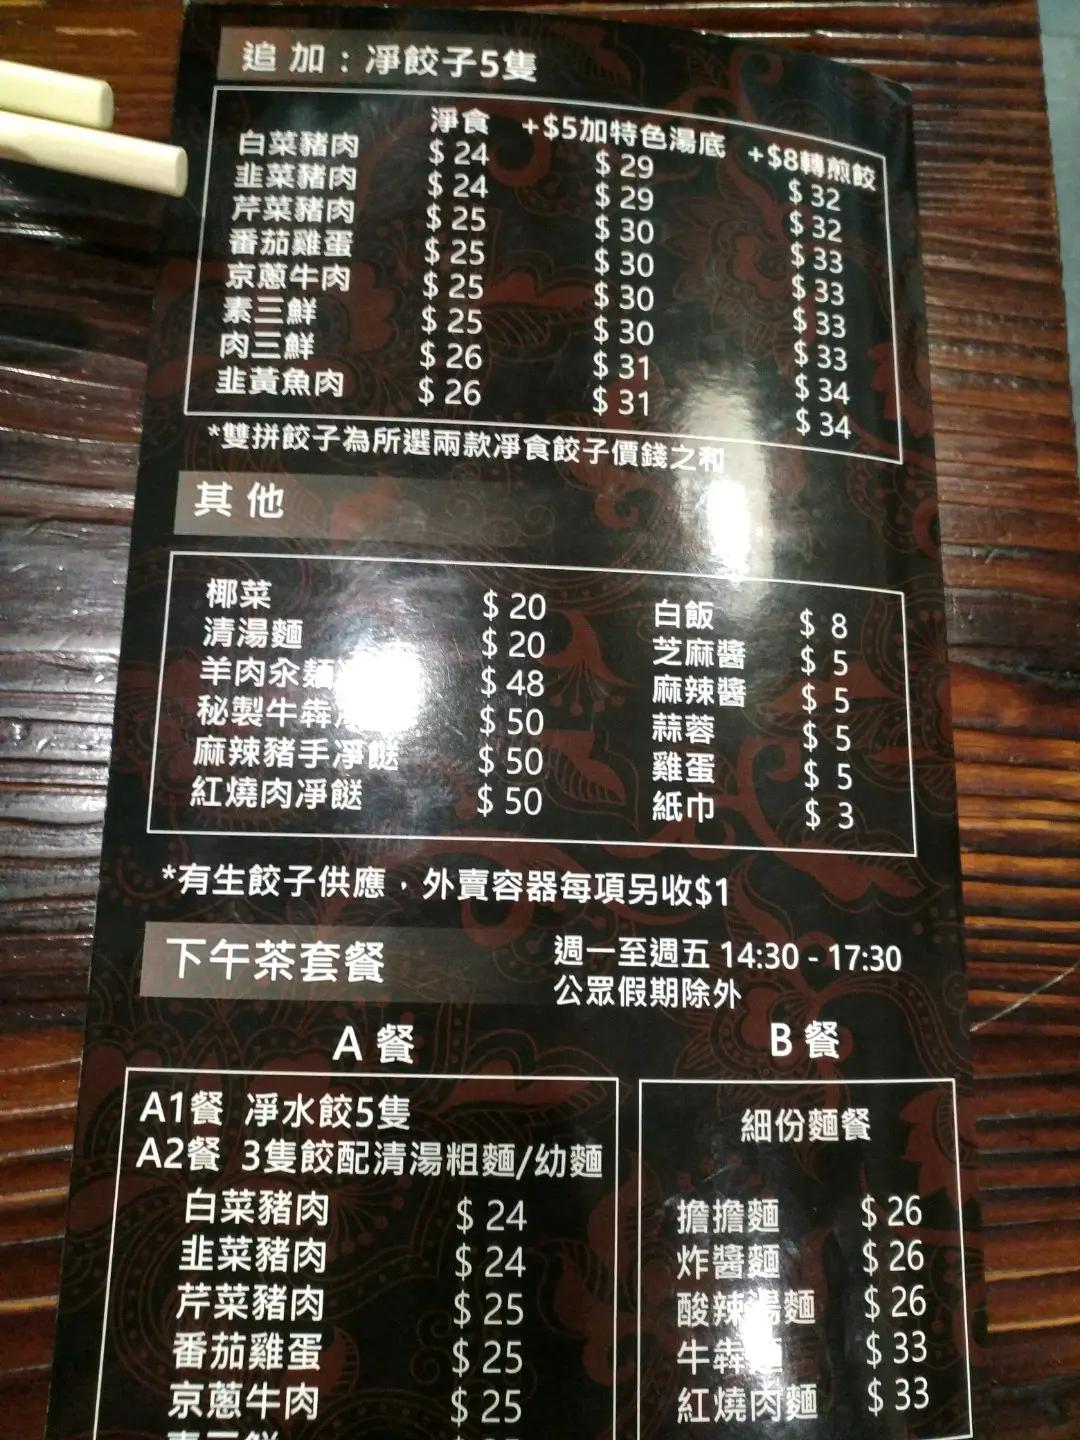 追加：凈餃子5隻
淨食 +$5加特色湯底 +$8轉煎餃
白菜豬肉 $24 $29 $32
韭菜豬肉 $24 $29 $32
芹菜豬肉 $25 $30 $33
番茄雞蛋 $25 $30 $33
京蔥牛肉 $25 $30 $33
素三鮮 $25 $30 $33
肉三鮮 $26 $31 $34
韭黃魚肉 $26 $31 $34
*雙拼餃子為所選兩款凈食餃子價錢之和
其他
椰菜 $20 白飯 $8
清湯麵 $20 芝麻醬 $5
羊肉汆麵 $48 麻辣醬 $5
秘製牛犇 $50 蒜蓉 $5
麻辣豬手凈餸 $50 雞蛋 $5
紅燒肉凈餸 $50 紙巾 $3
*有生餃子供應，外賣容器每項另收$1
下午茶套餐 週一至週五 14:30 - 17:30
公眾假期除外
A餐
A1餐 凈水餃5隻
A2餐 3隻餃配清湯粗麵/幼麵
白菜豬肉 $24
韭菜豬肉 $24
芹菜豬肉 $25
番茄雞蛋 $25
京蔥牛肉 $25
素三鮮
B餐
細份麵餐
擔擔麵 $26
炸醬麵 $26
酸辣湯麵 $26
牛犇麵 $33
紅燒肉麵 $33